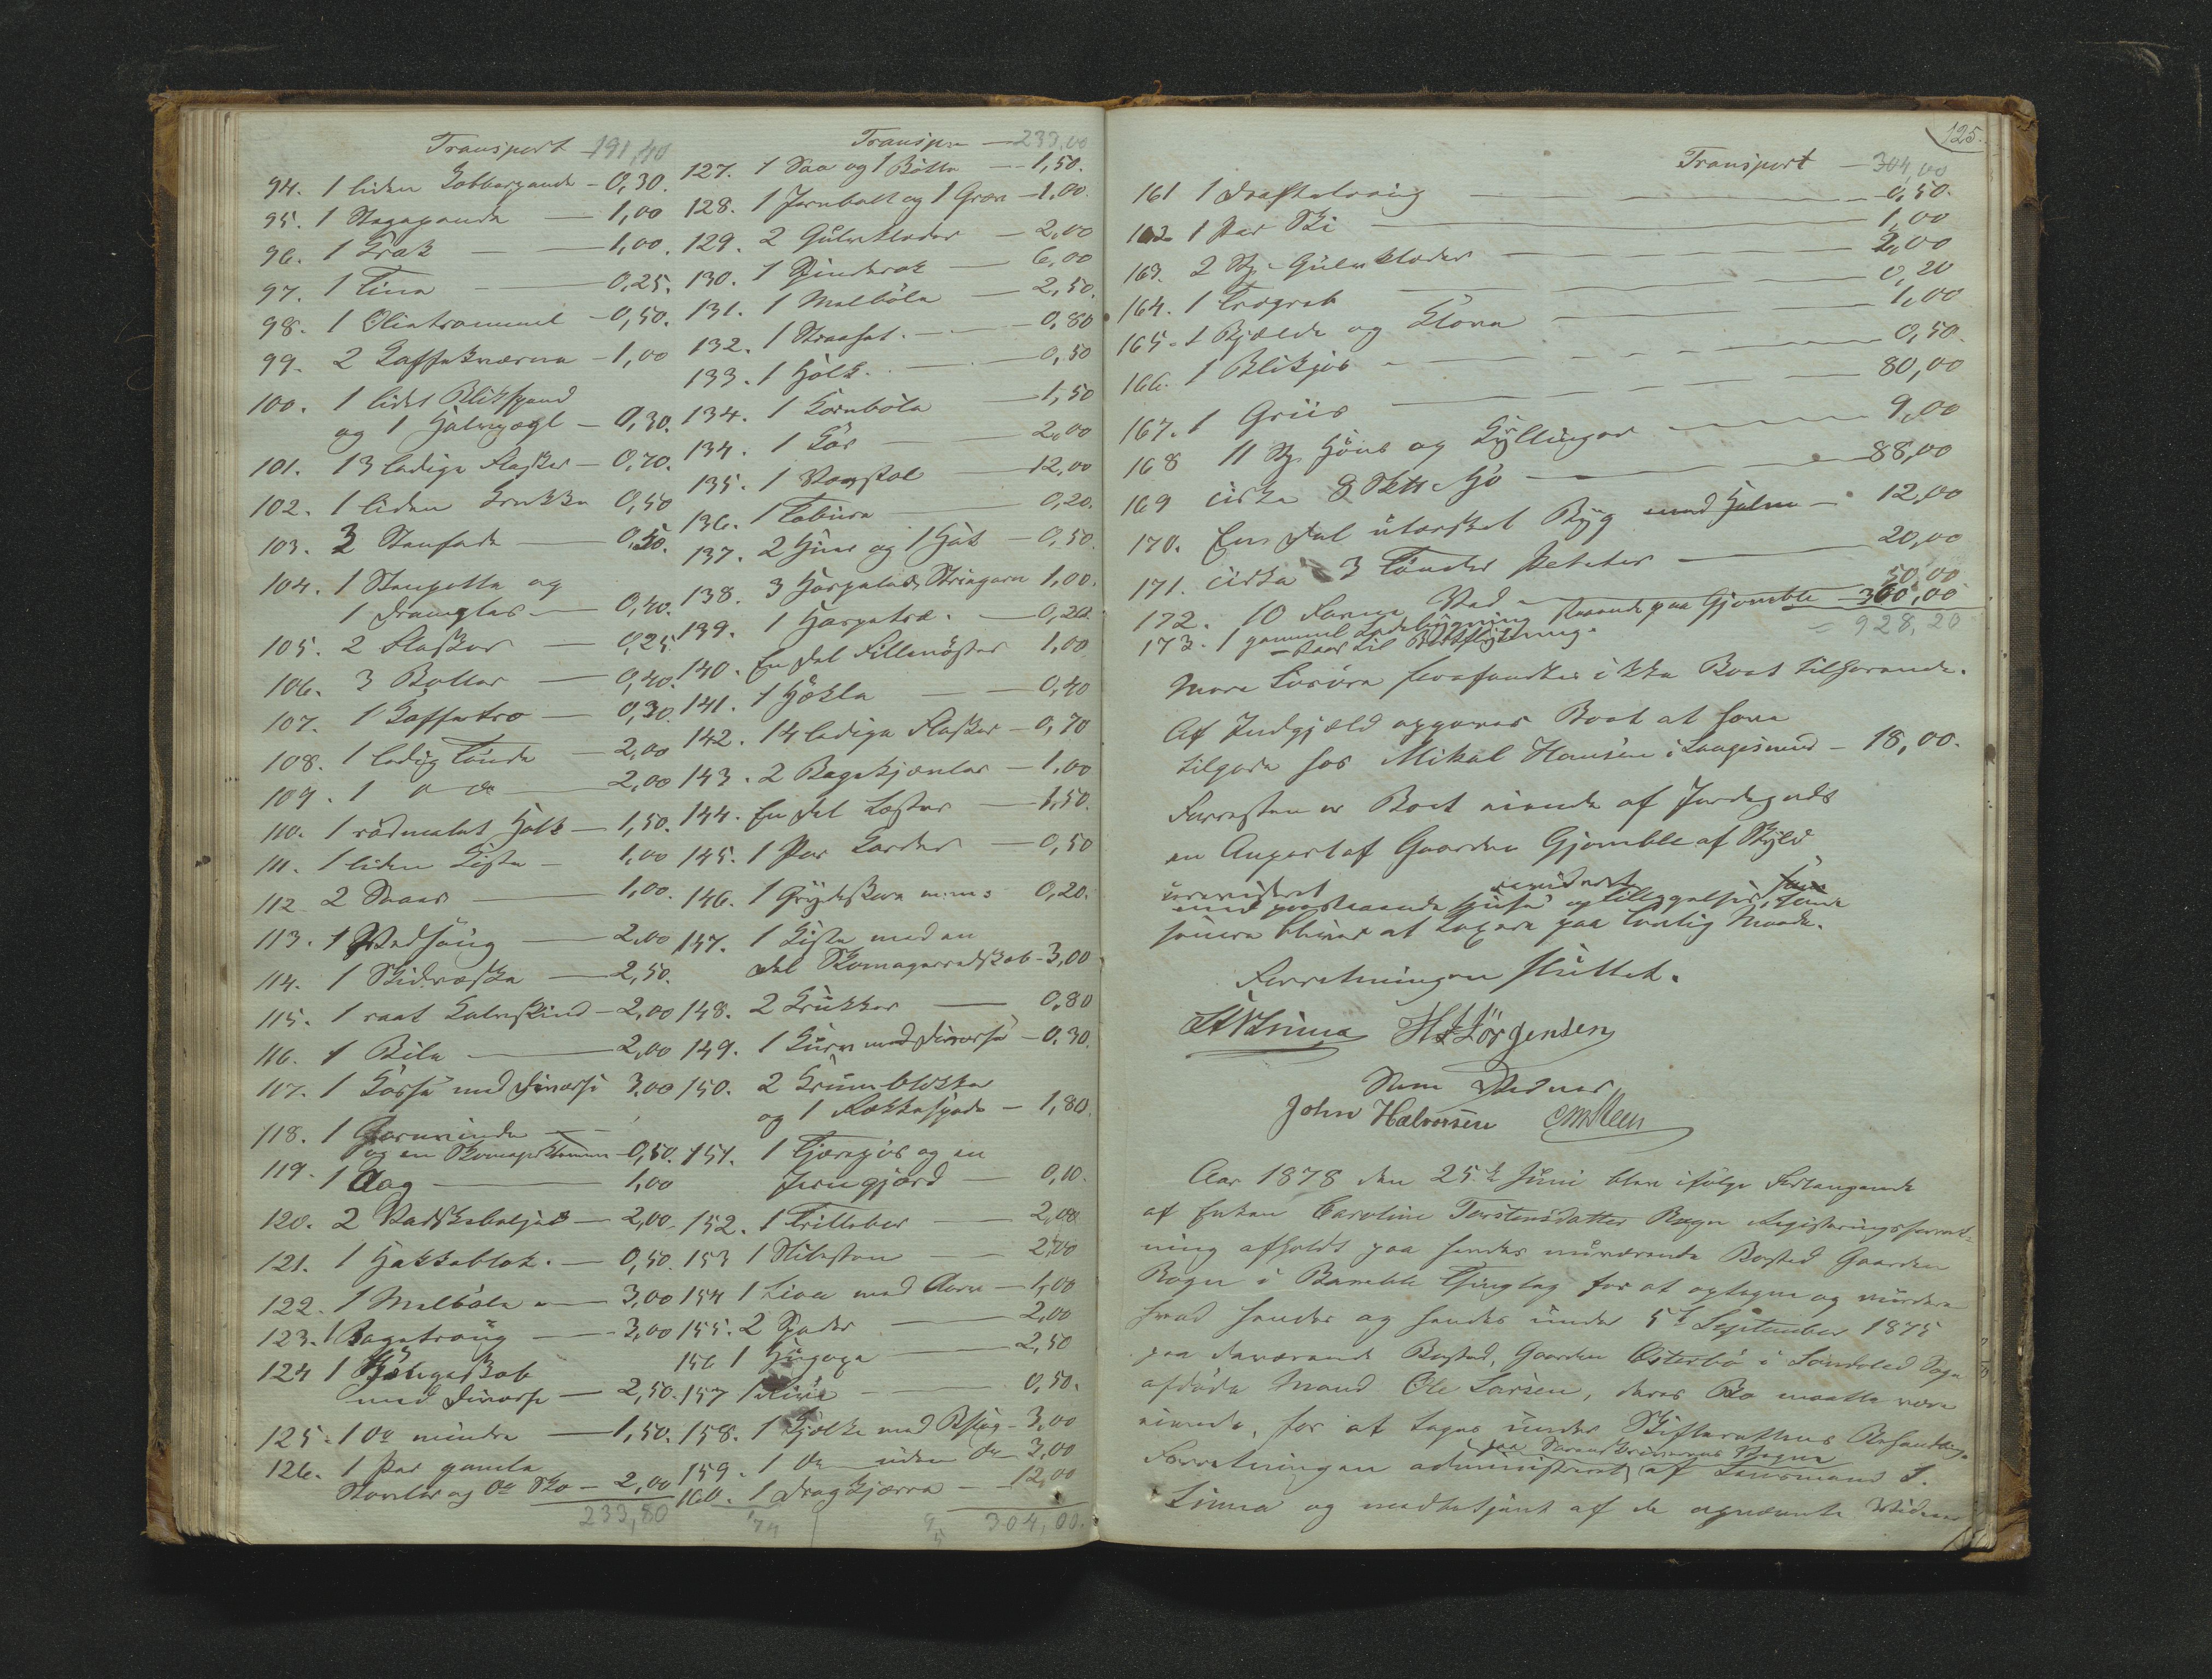 Transport 191,40
94. 1 liden Kobberpande - 0,30.
95. 1 Stegepande - 1,00
96. 1 Krak - 1,00.
97. 1 Tina - 0,25.
98. 1 Olietrommel - 0,50.
99. 2 Kaffekværne - 1,00
100. 1 lidet Blikspand
og 1 - 0,30.
101. 13 ledige Flasker - 0,70.
102. 1 liden Krukke 0,50
103. 3 Stenfade - 0,50.
104. 1 Stenpotte og
1 Dramglas - 0,40.
105. 2 Flasker - 0,25
106. 3 Boller - 0,40.
107. 1 Kaffe - 0,30
108. 1 ledig Tønde - 2,00
109. 1 " do - 2,00
110. 1 rødmalet Holk - 1,50.
111. 1 liden Kiste - 1,00
112 2 Saaer - 1,00.
113. 1 Vedsaug - 2,00
114. 1 Skidvæske - 2,50.
115. 1 raat Kalveskind - 2,00
116. 1 Bile - 2,00
117. 1 Kasse med Diverse 3,00
118. 1 Garnvinde
og en - 0,50.
119. 1 Aag - 1,00
120. 2 Vadskebaljer - 2,00
121. 1 Hakkeblok. - 0,50.
122. 1 Melbøle - 3,00
123. 1 Bagetraug - 3,00
124 1 Hengeskab
med Diverse - 2,50.
125. 1 do mindre - 1,50.
126. 1 Par gamle
Støvler og do Sko - 2,00
233,80
Transpor - 233,00
127. 1 Saa og 1 Bøtte - 1,50.
128. 1 Jernbolt og 1 Grev - 1,00.
129. 2 Gulvklæder - 2,00
130. 1 Spinderok - 6,00
131. 1 Melbøle - 2,50.
132. 1 - 0,80
133. 1 Holk. - 0,50
134. 1 Kornbøle - 1,50
134. 1 Kar - 2,00
135. 1 Vævstol - 12,00
136. 1 - 0,20.
137. 2 og 1 - 0,50.
138. 3 Hespeler Stringarn 1,00.
139. 1 Hespetræ. - 0,20
140. En Del 1,00
141. 1 Hekle - 0,40
142. 14 ledige Flasker - 0,70
143. 2 Bagekjævler - 1,00
144. En Del Læster - 1,50.
145. 1 Par Karder - 0,50
146. 1 Grydeskive m.m: 0,20.
147. 1 Kiste med en
Del Skomagerredskab - 3,00
148. 2 Krukker - 0,80
149. 1 Kurv med Diverse - 0,30.
150. 2
og 1 - 1,80.
151. 1 Tjære og en
Jerngjord - 0,10.
152. 1 Trillebør - 2,00
153 1 Slibesten - 2,00
154 1 Kiver med - 1,00
155. 2 Spader - 2,00
156 1 - 2,50
157 1 - 0,50.
158. 1 Kjelke med - 3,00
159. 1 do uden do - 3,00
160. 1 Dragkjærre - 12,00
304,00.
125.
Transport - 304,00
161 1 - 0,50.
162 1 Par Ski - 1,00
163. 2 St. Gulvklæder - 2,00
164. 1 - 0,20
165. 1 Bjelde og Klave - 1,00
166. 1 - 0,50.
167. 1 Griis - 80,00
168 11 St. Høns og Kyllinger - 9,00
169 cirka 8 Hø - 88,00
170. En Del utærsket Byg med Halm - 12,00
171. cirka 3 Tønder Poteter - 20,00
172. 10 Favne Ved - 50,00
173. 1 gammel Ladebygning staaende paa Gjømble 300,00
- klar til Bortflytning.
= 928,20
Mere Løsøre forefandtes ikke Boet tilhørende.
Af Indgjæld opgaves Boet at have
tilgode hos Mikal Hansen i Langesund - 18,00.
Forresten er Boet eiende af Jordegods
en Anpart af Gaarden Gjømble af Skyld
urevideret revideret
med paastaaende Huse og Tilliggelser, som
senere bliver at taxere paa lovlig Maade.
Forretningen sluttet.
Linna H Jørgensen
Som Vidner
John Halvorsen
Aar 1878 den 25de Juni blev ifølge Forlangende
af Enken Caroline Torstensdatter Rogn Registreringsforret-
ning afholdt paa hendes nuværende Bosted Gaarden
Rogn i Bamble Thinglag for at optegne og vurdere
hvad hendes og hendes under 5te September 1875
paa daværende Bosted, Gaarden Østerbø i Søndeled Sogn
afdøde Mand Ole Larsen, deres Bo maatte være
eiende, for at tages under Skifterettens Behandling.
paa Sorenskriverens Vegne
Forretningen administreret af Lensmand S.
Linna og medbetjent af de opnævnte Vidner